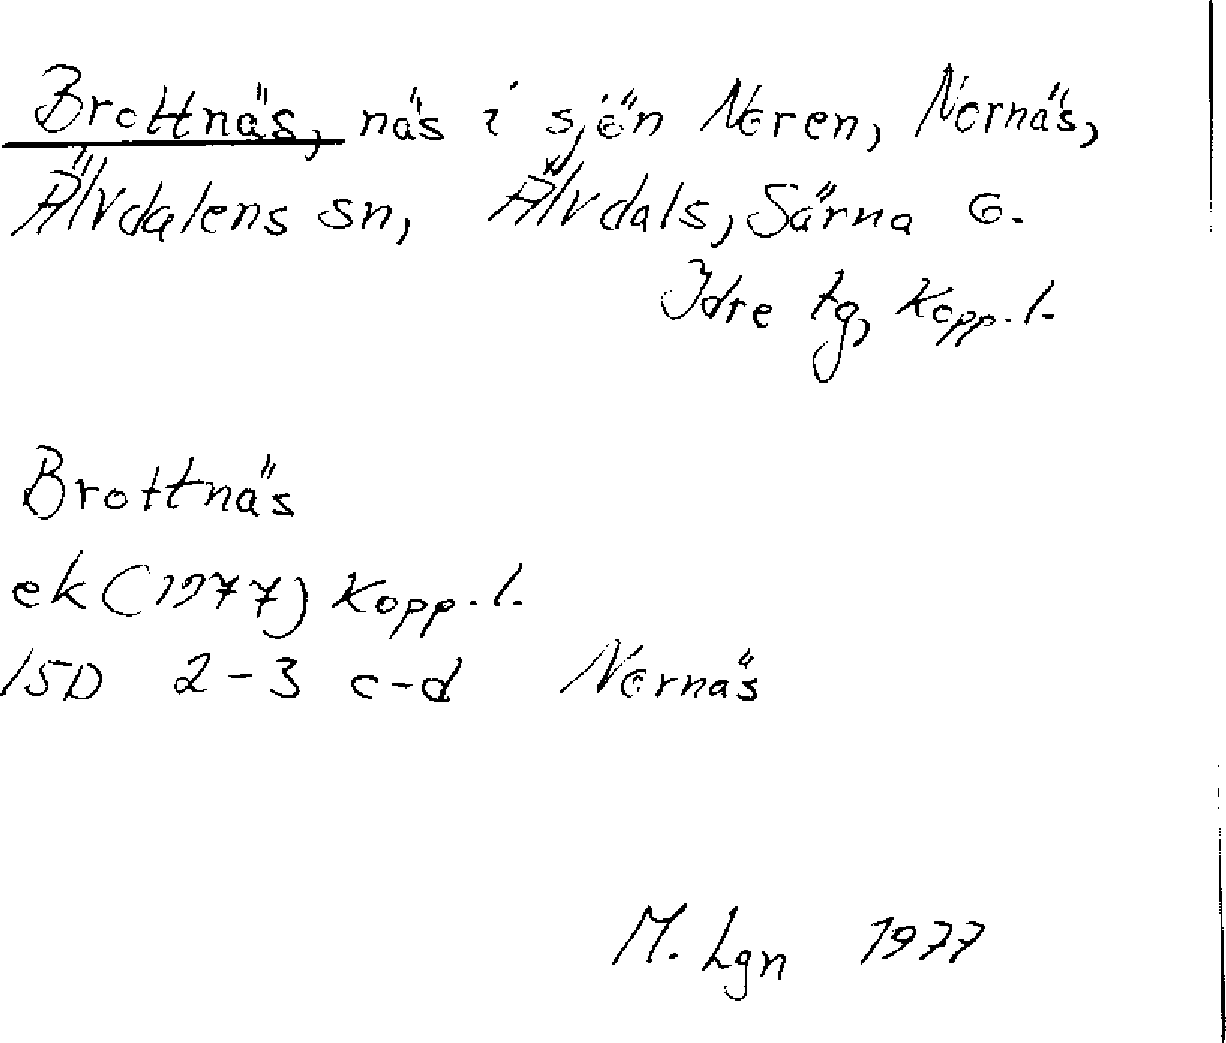 Brottnäs, näs i sjön Noren, Nornäs,
Älvdalens sn, Älvdals, Särna o.
Idre tg, Kopp. l.
Brottnäs
ek (1977) Kopp. l.
15D 2-3 c-d Nornäs
M. Lgn 1977